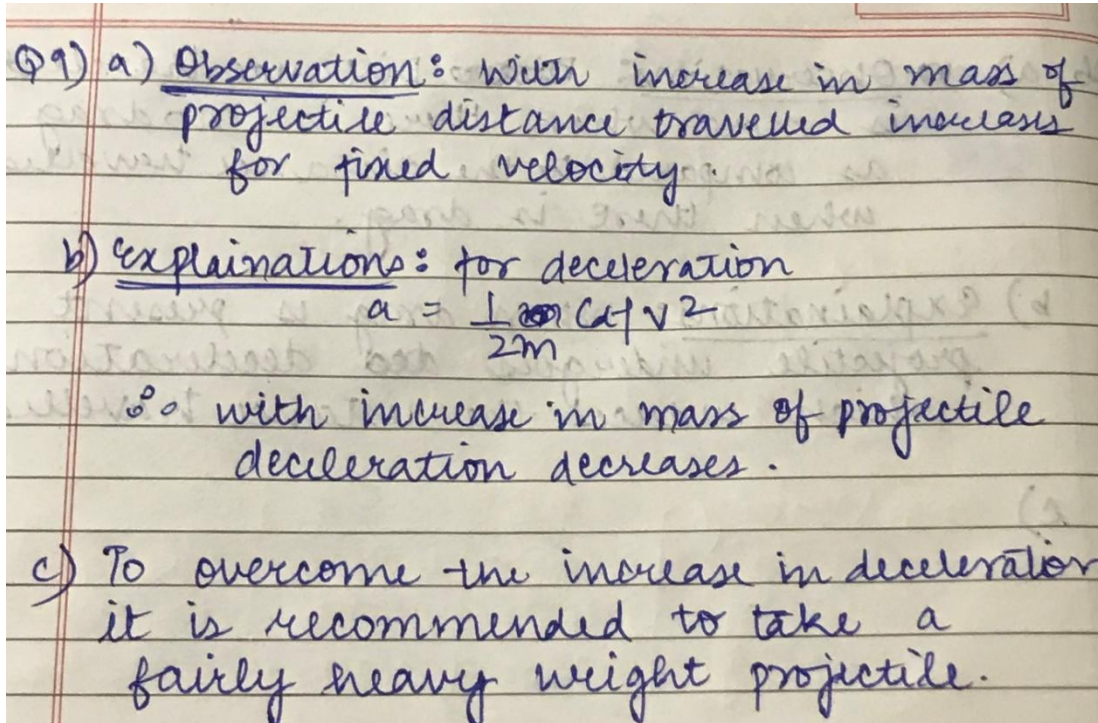 Q9) a) Observation: with increase in mass of
projectile distance travelled increases
for fixed velocity.
b) Explainations: for deceleration
a = 1/2m Cdf v2
∴ with increase in mass of projectile
deceleration decreases.
c) To overcome the increase in deceleration
it is recommended to take a
fairly heavy weight projectile.